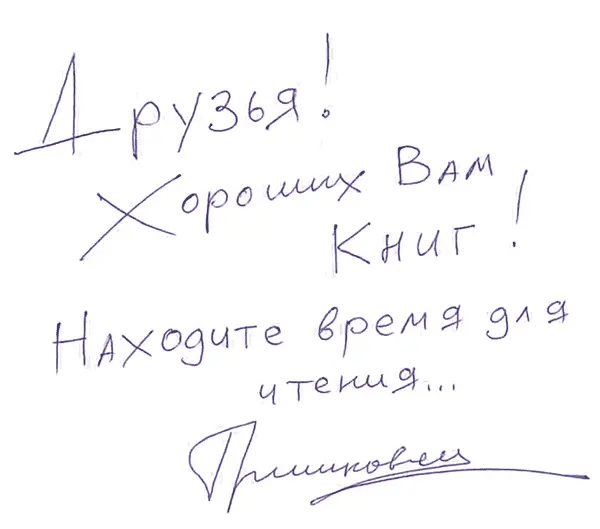 Друзья!
Хороших Вам
Книг!
Находите время для
чтения...
Гришковец